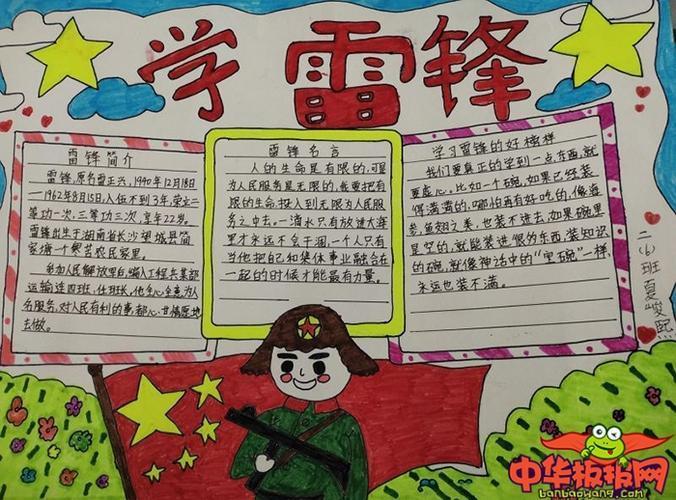 学雷锋
雷锋简介
雷锋,原名雷正兴,1940年12月18日
—1962年8月15日,入伍不到3年,荣立二
等功一次,三等功三次,享年22岁。
雷锋出生于湖南省长沙望城县简
家塘一个贫苦农民家里。
参加人民解放军后,编入工程兵某部
运输连四班,任班长,他全心全意为人
民服务,对人民有利的事都心甘情愿地
去做。
雷锋名言
人的生命是有限的,可是
为人民服务是无限的,我要把有
限的生命投入到无限为人民服
务之中去。一滴水只有放进大海
里才永远不会干涸,一个人只有
当他把自己和集体事业融合在
一起的时候才能最有力量。
学习雷锋的好榜样
我们要真正的学到一点东西,就
要虚心。比如一个碗,如果已经装
得满满的,哪怕再有好吃的,像海
参,鱼翅之类,也装不进去,如果碗里
是空的,就能装进很的东西,装知识
的碗,就像神话中的“宝碗”一样,
永远也装不满。
二(6)班夏峻熙
中华板报网
banbaowang.com